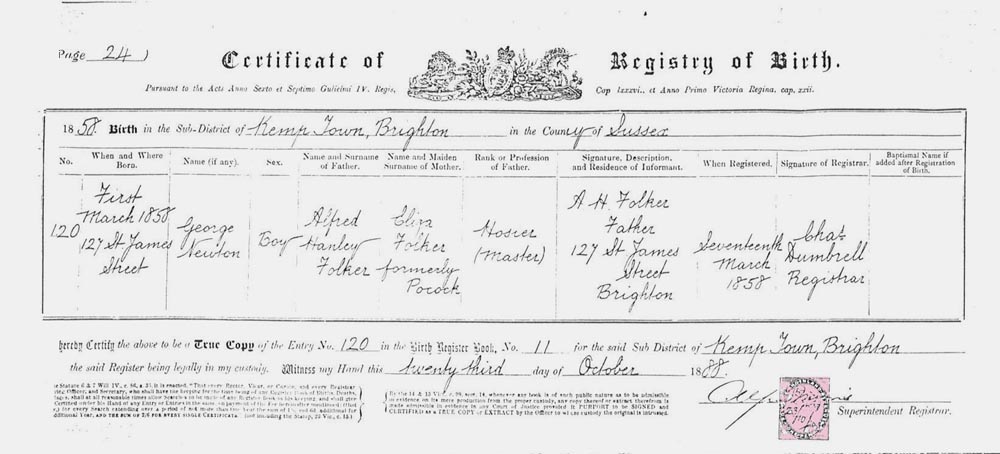 Page 24
Certificate of Registry of Birth.
Pursuant to the Acts Anno Sexto et Septimo Gulielmi IV. Regis, Cap lxxxvi., et Anno Primo Victoria Regina. cap. xxii.
1858. Birth in the Sub-District of Kemp Town, Brighton in the County of Sussex
No.
When and Where Born.
Name (if any).
Sex.
Name and Surname of Father.
Name and Maiden Surname of Mother.
Rank or Profession of Father.
Signature, Description, and Residence of Informant.
When Registered.
Signature of Registrar.
Baptismal Name if added after Registration of Birth.
120
First
March 1858
127 St James
Street
George
Newton
Boy
Alfred
Hanley
Folker
Eliza
Folker
formerly
Pocock
Hosier
(Master)
A H Folker
Father
127 St James
Street
Brighton
Seventeenth
March
1858
Chas
Dumbrell
Registrar
hereby Certify the above to be a True Copy of the Entry No. 120 in the Birth Register Book, No. 11 for the said Sub District of Kemp Town, Brighton
the said Register being legally in my custody. Witness my Hand this twenty third day of October 1888.
Superintendent Registrar.